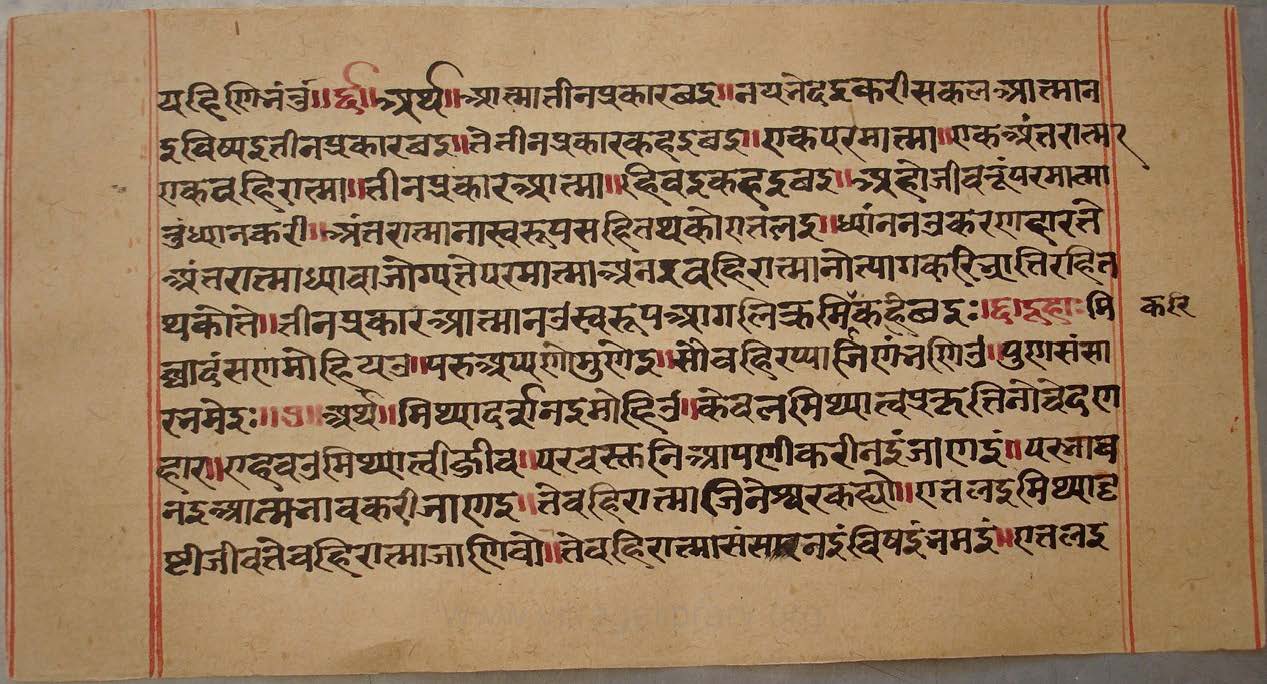 यहिणिभंतु॥६॥अर्थ॥आत्मातीनप्रकारबइ॥नयनेदइकरीसकलआत्मान
इविष्यइतीनप्रकारबइ॥तेतीनप्रकारकहइबइ॥एकपरमात्मा॥एकअंतरात्मा
एकबहिरात्मा॥तीनप्रकारआत्मा॥हिवइकहइबइ॥अहोजीवतूंपरमात्मा
नुंध्यानकरी॥अंतरात्मानास्वरूपसहितथको॥एतलइ॥ध्यांननउकरणहारते
अंतरात्माध्यावाजोग्यतेपरमात्माअनइबहिरात्मानोत्यागकरिभ्रांतिरहित
थकोते॥तीनप्रकारआत्मानउस्वरूपआगलिक्रमिंकहंबइः॥६॥दूहाः॥मि
च्छादंसणमोहियउ॥परुअप्पणोमुणेइ॥सोबहिरप्पाजिणंभणिउ॥पुणसंसा
रभमेइः॥७॥अर्थ॥मिथ्यादर्शनइमोहिउं॥केवलमिथ्यात्वप्रकृतिनोवेदण
हार॥एहवउमिथ्यात्वीजीव॥परवस्तुनिआपणीकरीनइंजाणइं॥परभाव
नइआत्मभावकरीजाणइ॥तेबहिरात्माजिनेश्वरकह्यो॥एतलइमिथ्यादृ
ष्टीजीवतेबहिरात्माजाणिवो॥तेबहिरात्मासंसारनइंविषइंभमइं॥एतलइ
करि